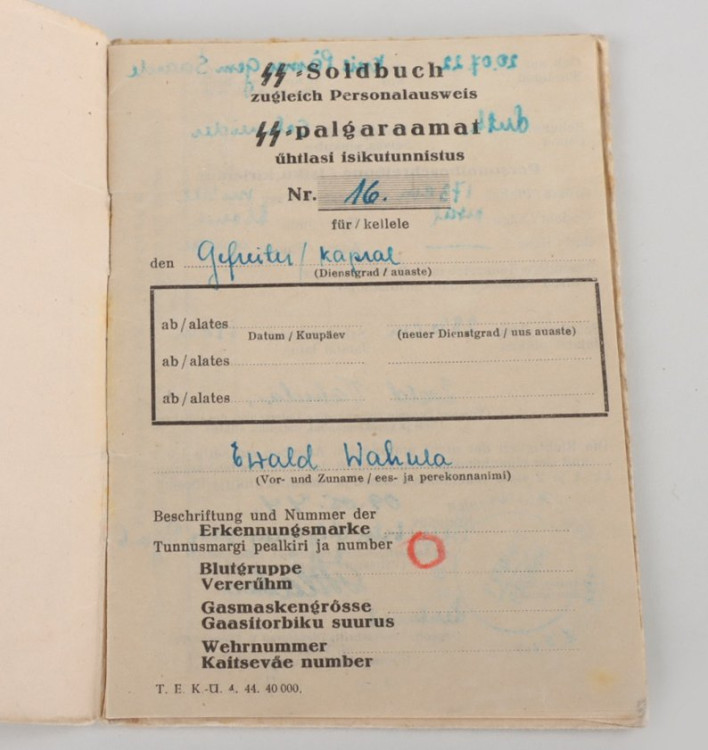 ᛋᛋ-Soldbuch
zugleich Personalausweis
ᛋᛋ-palgaraamat
ühtlasi isikutunnistus
Nr. 16.
für / kellele
den Gefreiter / kapral
(Dienstgrad / auaste)
ab / alates
Datum / Kuupäev (neuer Dienstgrad / uus auaste)
ab / alates
ab / alates
Ewald Wahula
(Vor- und Zuname / ees- ja perekonnanimi)
Beschriftung und Nummer der
Erkennungsmarke
Tunnusmärgi pealkiri ja number
Blutgruppe
Vererühm
Gasmaskengrösse
Gaasitorbiku suurus
Wehrnummer
Kaitseväe number
T. E. K.-Ü. 4. 44. 40 000.